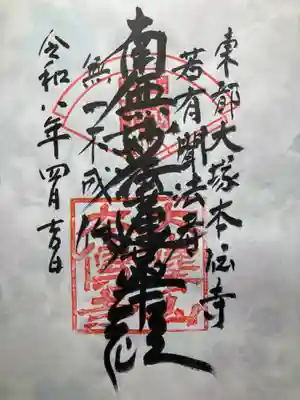 東都大塚本伝寺
若有聞法者
南無妙法蓮華経
無一不成仏
令和八年四月吉日